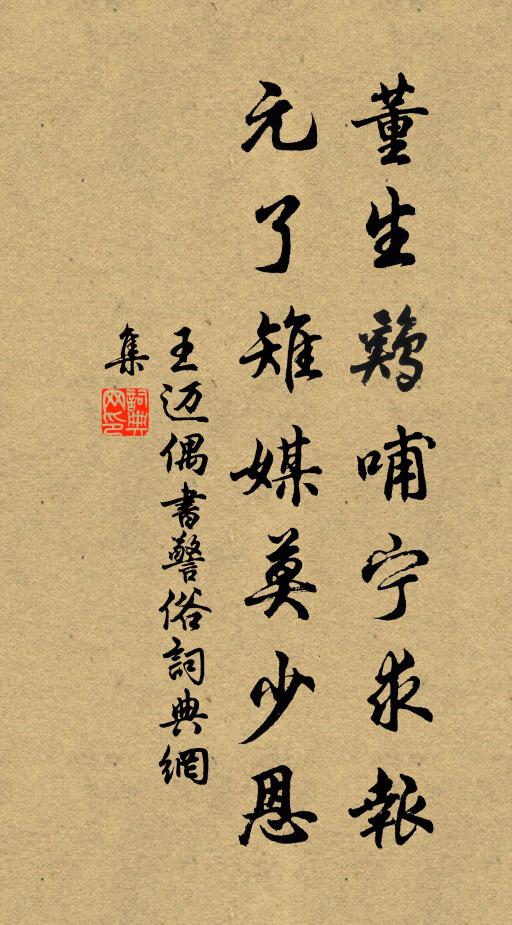 董生鷄哺宁求報
元了雉媒莫少恩
王迈偶書警俗詞典網
集
詞典網印